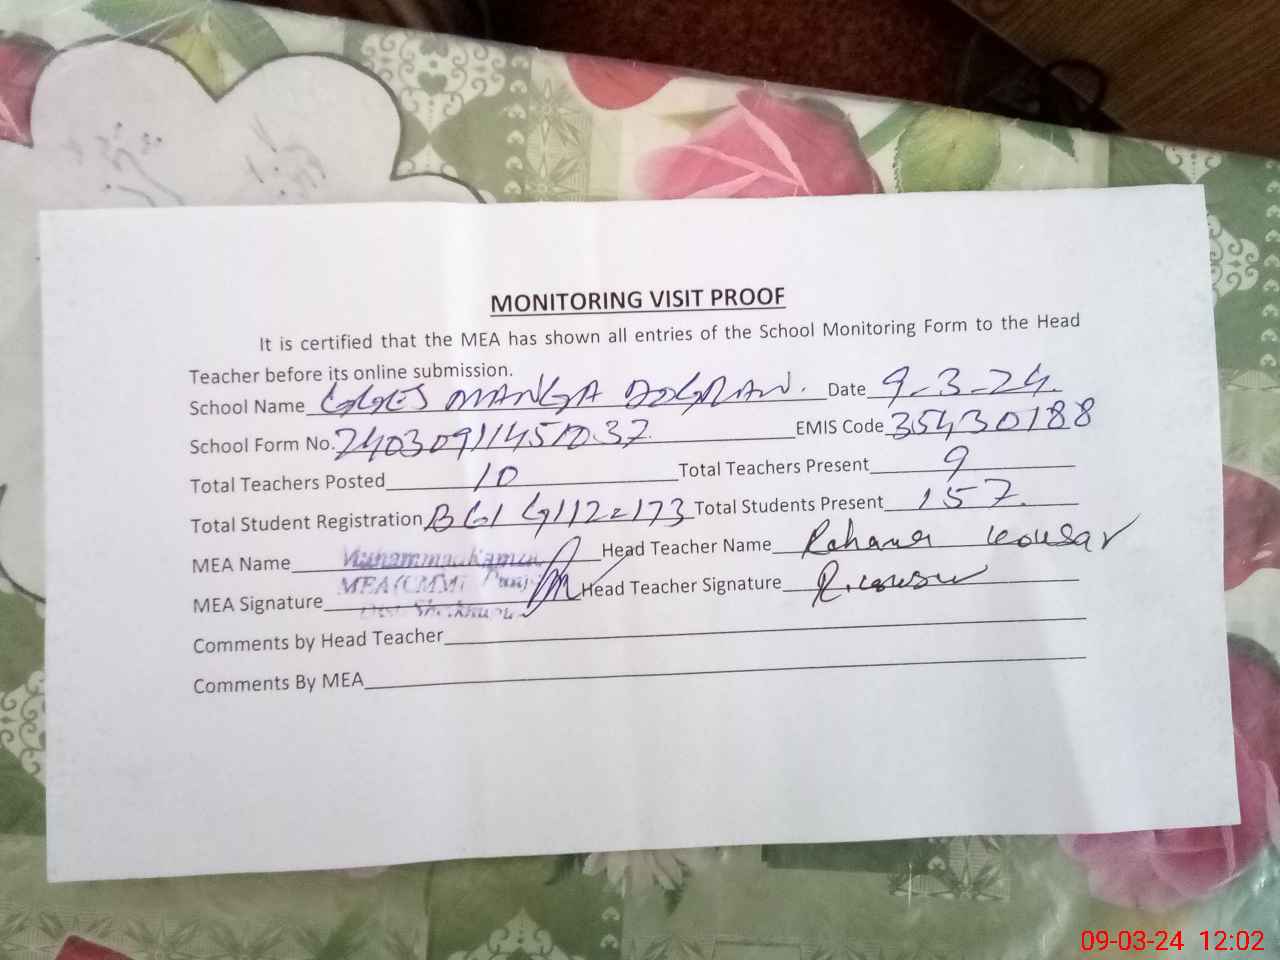 MONITORING VISIT PROOF
It is certified that the MEA has shown all entries of the School Monitoring Form to the Head
Teacher before its online submission.
School Name GGES MANGA DOGRAN. Date 9-3-24.
School Form No. 24030911451037 EMIS Code 35430188
Total Teachers Posted 10 Total Teachers Present 9
Total Student Registration B 61 G 112 = 173 Total Students Present 157.
MEA Name Muhammad Head Teacher Name Rehana Kousar
MEA Signature MEA (CMM) Head Teacher Signature R. Kousar
Comments by Head Teacher
Comments By MEA
09-03-24 12:02